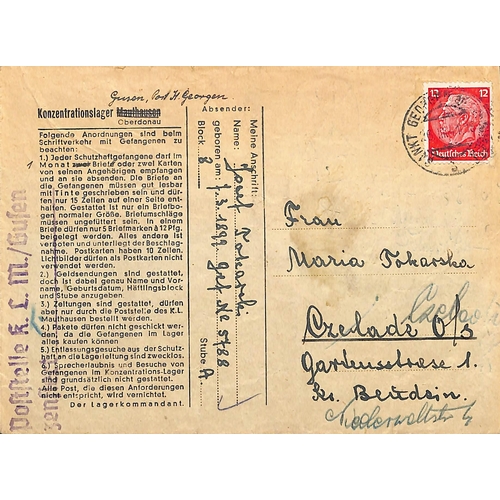 Gusen, Post St. Georgen
Konzentrationslager Mauthausen
Oberdonau
Folgende Anordnungen sind beim
Schriftverkehr mit Gefangenen zu
beachten:
1.) Jeder Schutzhaftgefangene darf im
Monat zwei Briefe oder zwei Karten
von seinen Angehörigen empfangen
und an sie absenden. Die Briefe an
die Gefangenen müssen gut lesbar
mit Tinte geschrieben sein und dür-
fen nur 15 Zeilen auf einer Seite ent-
halten. Gestattet ist nur ein Briefbo-
gen normaler Größe. Briefumschläge
müssen ungefüttert sein. In einem
Briefe dürfen nur 5 Briefmarken à 12 Pfg.
beigelegt werden. Alles andere ist
verboten und unterliegt der Beschlag-
nahme. Postkarten haben 10 Zeilen.
Lichtbilder dürfen als Postkarten nicht
verwendet werden.
2.) Geldsendungen sind gestattet,
doch ist dabei genau Name und Vor-
name, Geburtsdatum, Häftlingsblock
und Stube anzugeben.
3.) Zeitungen sind gestattet, dürfen
aber nur durch die Poststelle des K.L.
Mauthausen bestellt werden.
4.) Pakete dürfen nicht geschickt wer-
den, da die Gefangenen im Lager
alles kaufen können.
5.) Entlassungsgesuche aus der Schutz-
haft an die Lagerleitung sind zwecklos.
6.) Sprecherlaubnis und Besuche von
Gefangenen im Konzentrations-Lager
sind grundsätzlich nicht gestattet.
Alle Post, die diesen Anforderungen
nicht entspricht, wird vernichtet.
Der Lagerkommandant.
Poststelle K. L. M./Gusen
zensiert
Absender:
Meine Anschrift:
Name: Josef Tokarsk
geboren am: 7.3.1899 Gef. Nr. 5788
Block 8 Stube A
12 12
Deutsches Reich
Frau
Maria Tokarska
Czelade O/S
Gartensstrasse 1.
Kr. Bendsin.
Niederwaltstr